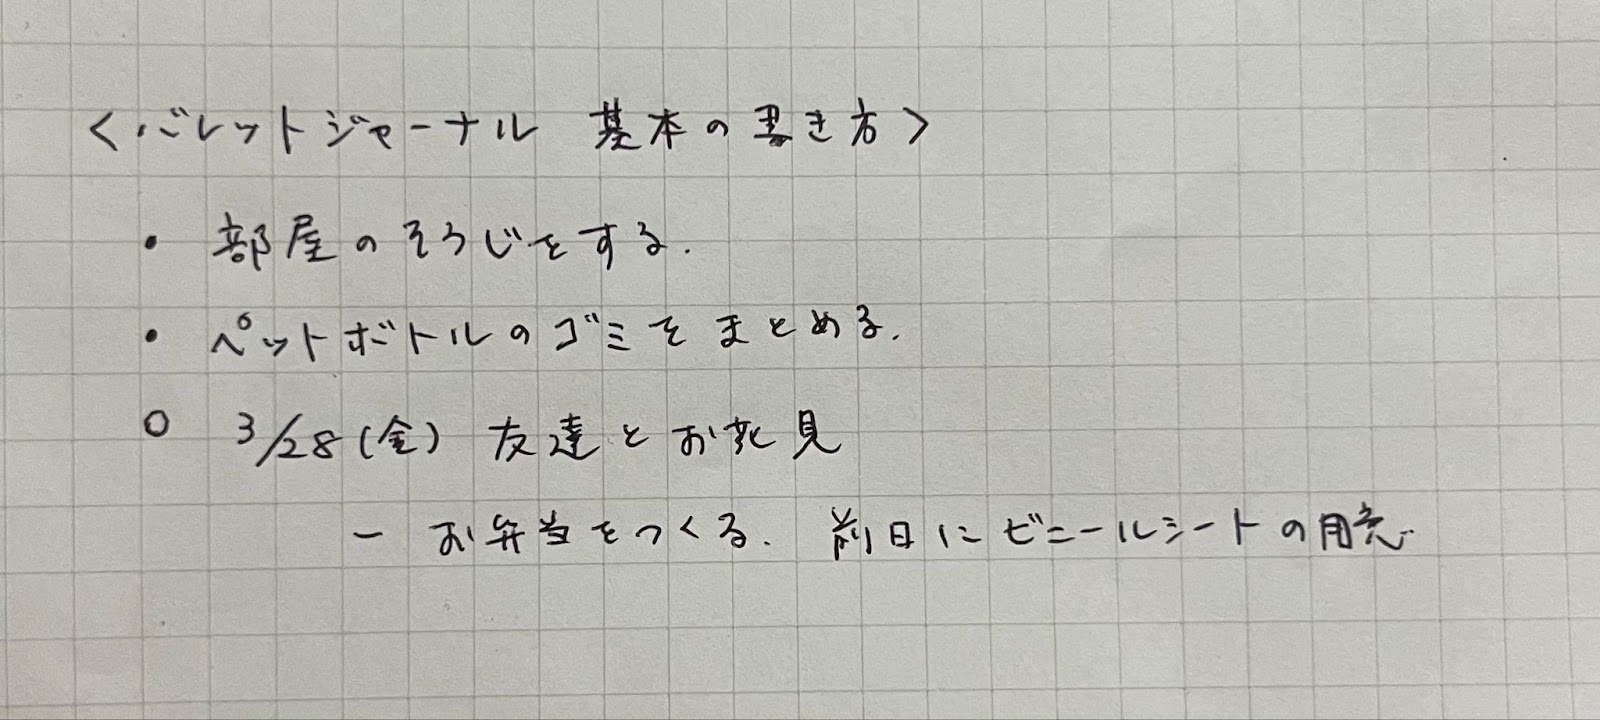 <バレットジャーナル 基本の書き方>
• 部屋のそうじをする.
• ペットボトルのゴミをまとめる.
○ 3/28(金) 友達とお花見
― お弁当をつくる. 前日にビニールシートの用意